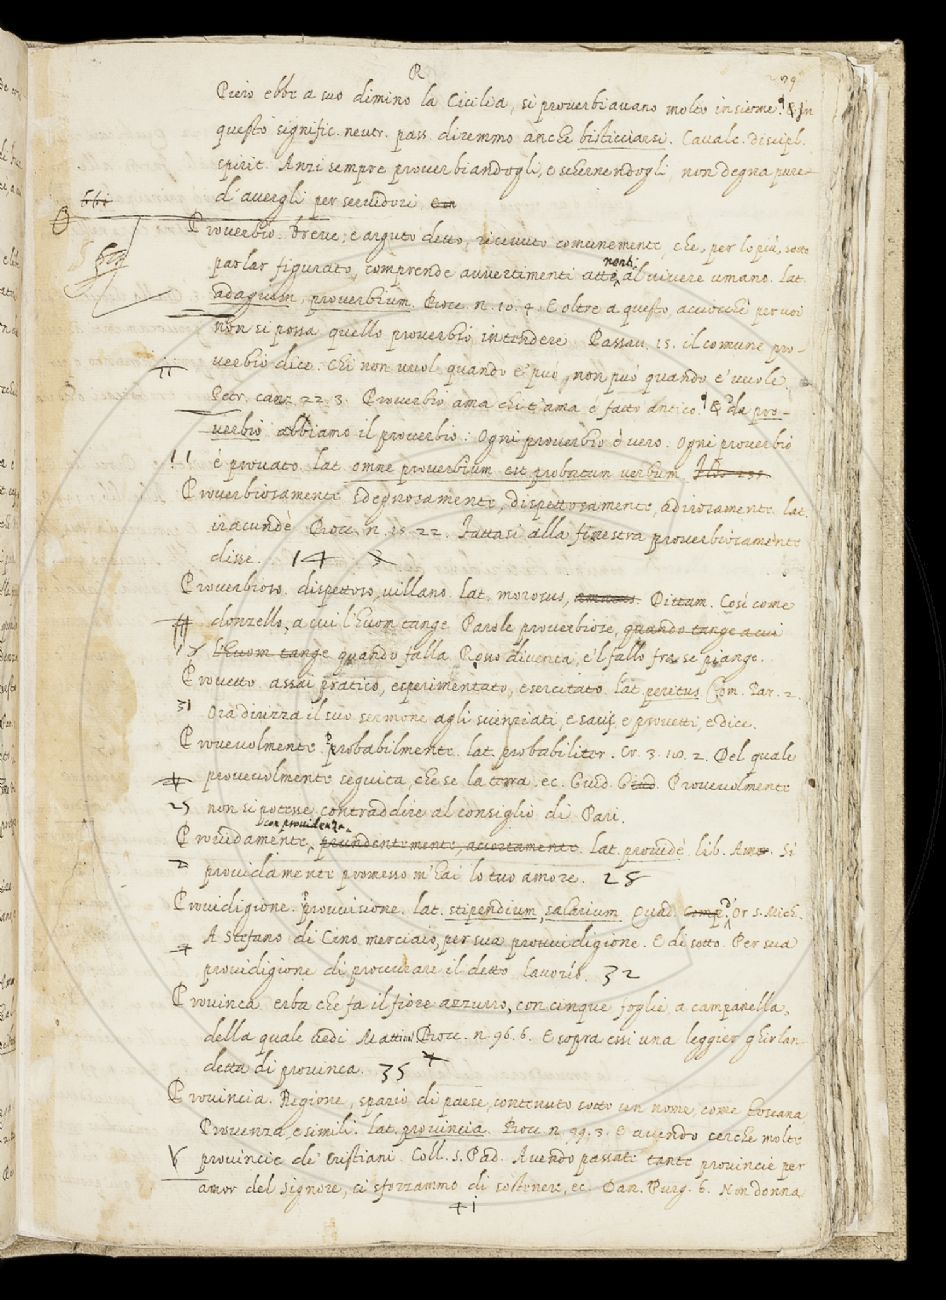 R
Piero ebbe a suo dimino la Cicilia, si proverbiavano molto insieme. & In
questo signific. neutr. pass. diremmo anche bisticciarsi. Cavalc. discipl.
spirit. Anzi sempre proverbiandogli, e schernendogli, non degna pure
d'avergli per servidori.
Proverbio. Breve, e arguto detto, ricevuto comunemente, che, per lo più, sotto
parlar figurato, comprende avvertimenti attenenti al vivere umano. lat.
adagium, proverbium. Bocc. n. 10. 4. E oltre a questo acciocchè per voi
non si possa quello proverbio intendere. Passav. 15. il comune pro-
verbio dice: Chi non vuol quando e' può, non può quando e' vuole.
Petr. canz. 22. 3. Proverbio ama chi t'ama è fatto antico. & da pro-
verbio abbiamo il proverbio: Ogni proverbio è vero. Ogni proverbio
è provato. lat. omne proverbium est probatum verbum.
11
Proverbiosamente. Sdegnosamente, dispettosamente, adirosamente. lat.
iracundè. Bocc. n. 15. 22. Fattasi alla finestra proverbiosamente
disse. 14
Proverbioso. dispettoso, villano. lat. morosus, Dittam. Così come
donzello, a cui l'Euom tange Parole proverbiose, quando tange a cui
l'Euom tange quando falla Rosso diventa, e'l fallo fra se piange.
Provetto. assai pratico, esperimentato, esercitato. lat. peritus. Com. Par. 2.
Ora dirizza il suo sermone agli scienziati, e savj, e provetti, e dice.
Provevolmente. probabilmente. lat. probabiliter. Cr. 3. 10. 2. Del quale
provevolmente seguita, che se la terra. ec. Guid. Provevolmente
non si potesse contraddire al consiglio di Pari.
con providenza.
Providamente, prudentemente, accortamente. lat. providè. lib. Am. Si
providamente promesso m'hai lo tuo amore. 28
Providigione. provvisione. lat. stipendium, salarium. Quad. Or S. Mich.
A Stefano di Cino merciaio, per sua providigione. E di sotto. Per sua
providigione di procurare il detto lavorio. 32
Provinca. erba che fa il fiore azzurro, con cinque foglie a campanella,
della quale vedi Mattiuol. Bocc. n. 96. 6. E sopra essi una leggier ghirlan
detta di provinca. 35
Provincia. Regione, spazio di paese, contenuto sotto un nome, come Toscana
Provenza, e simili. lat. provincia. Bocc. n. 99. 3. E avendo cerche molte
provincie de' Cristiani. Coll. S. Pad. Avendo passate tante provincie per
amor del Signore, ci sforzammo di sostenere, ec. Dan. Purg. 6. Non donna
41